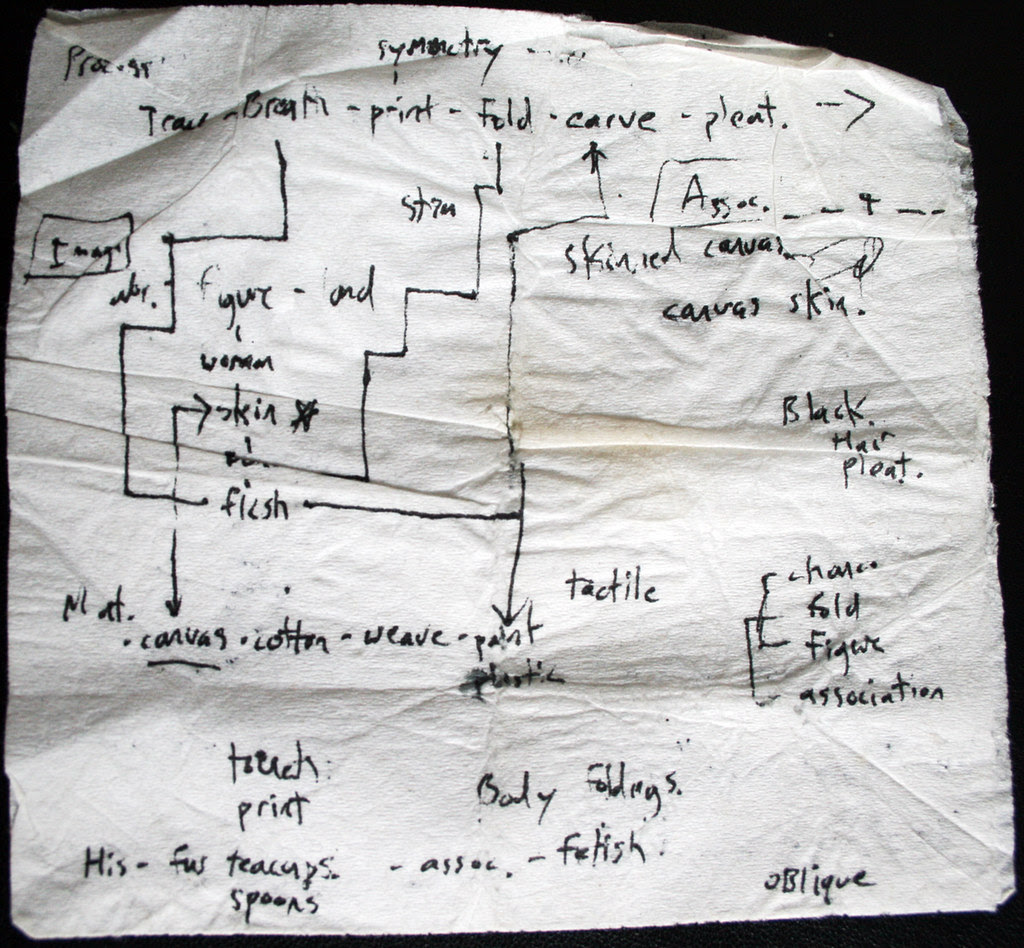 Process
symmetry
Breath - print - fold - carve - pleat. -->
Assoc. - - + - -
skinned canvas
Image
figure - land
canvas skin.
woman
skin
Black.
Hair
pleat.
flesh
tactile
chance
fold
figure
association
Mat.
· canvas · cotton - weave - paint
plastic
touch
print
Body foldings.
His - fur teacups. - assoc. - fetish.
spoons
oBlique